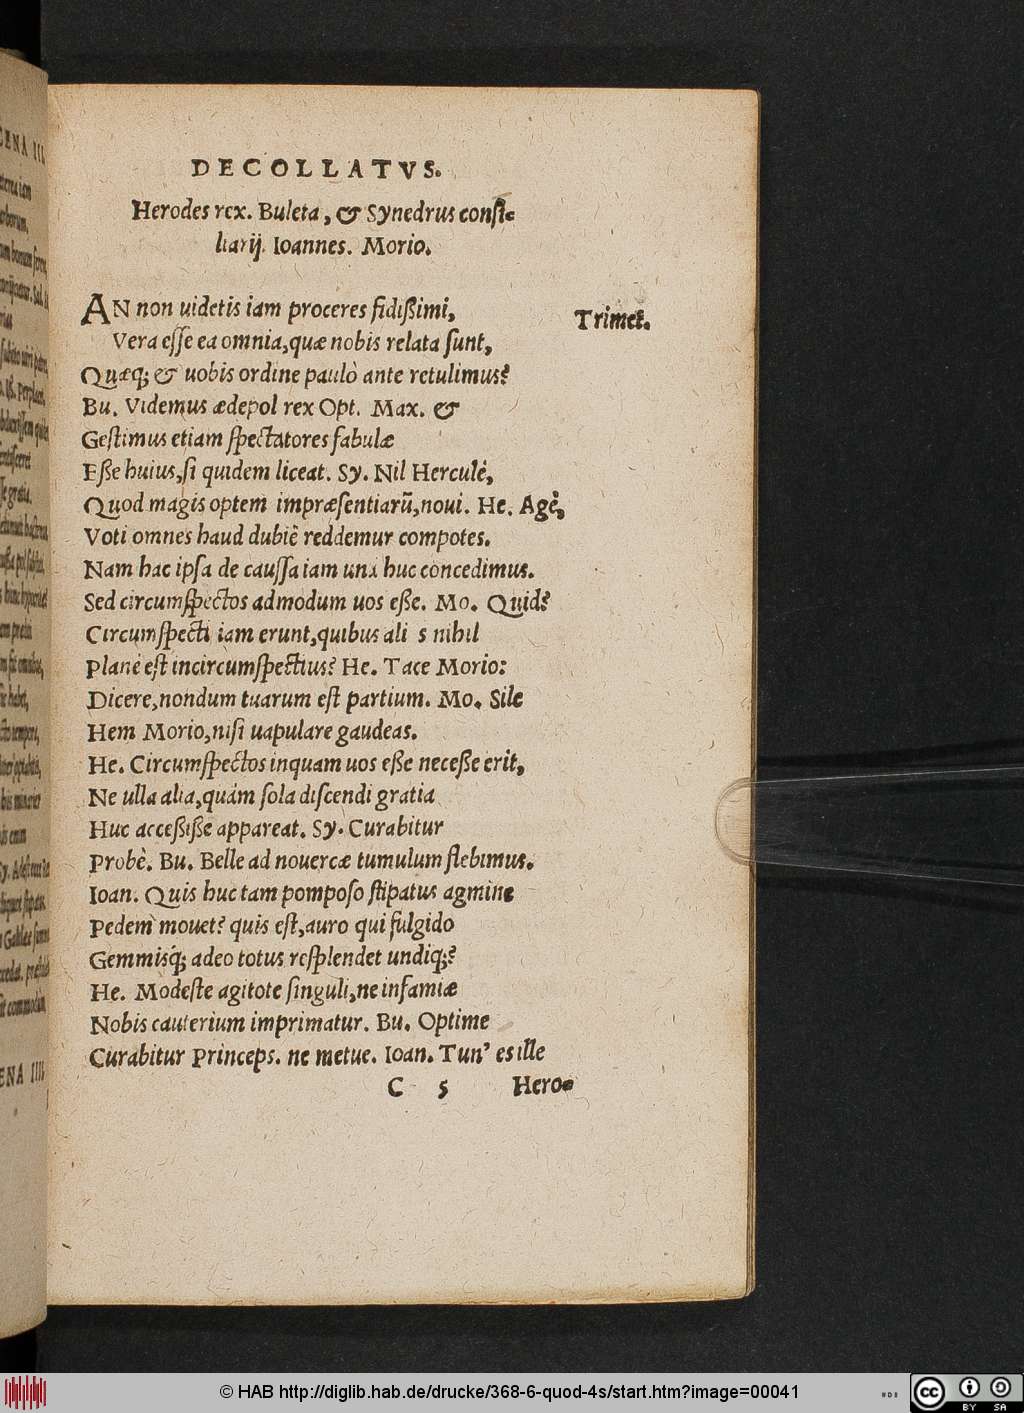 DECOLLATVS.
Herodes rex. Buleta, & Synedrus consi-
liarij. Ioannes. Morio.
AN non uidetis iam proceres fidißimi,
Trimet.
Vera eſſe ea omnia, quæ nobis relata ſunt,
Quæq; & uobis ordine paulò ante retulimus?
Bu. Videmus ædepol rex Opt. Max. &
Geſtimus etiam ſpectatores fabulæ
Eße huius, ſi quidem liceat. Sy. Nil Herculè,
Quod magis optem impræſentiarũ, noui. He. Agè,
Voti omnes haud dubiè reddemur compotes.
Nam hac ipſa de cauſſa iam una huc concedimus.
Sed circumſpectos admodum uos eße. Mo. Quid?
Circumſpecti iam erunt, quibus ali s nihil
Planè eſt incircumſpectius? He. Tace Morio:
Dicere, nondum tuarum eſt partium. Mo. Sile
Hem Morio, niſi uapulare gaudeas.
He. Circumſpectos inquam uos eße neceße erit,
Ne ulla alia, quám ſola diſcendi gratia
Huc acceßiße appareat. Sy. Curabitur
Probè. Bu. Belle ad nouercæ tumulum flebimus.
Ioan. Quis huc tam pompoſo ſtipatus agmine
Pedem mouet? quis eſt, auro qui fulgido
Gemmisq́; adeo totus reſplendet undiq;?
He. Modeſte agitote ſinguli, ne infamiæ
Nobis cauterium imprimatur. Bu. Optime
Curabitur Princeps. ne metue. Ioan. Tun' es ille
C 5 Hero-
CENA III.
ENA IIII
© HAB http://diglib.hab.de/drucke/368-6-quod-4s/start.htm?image=00041
cc BY SA